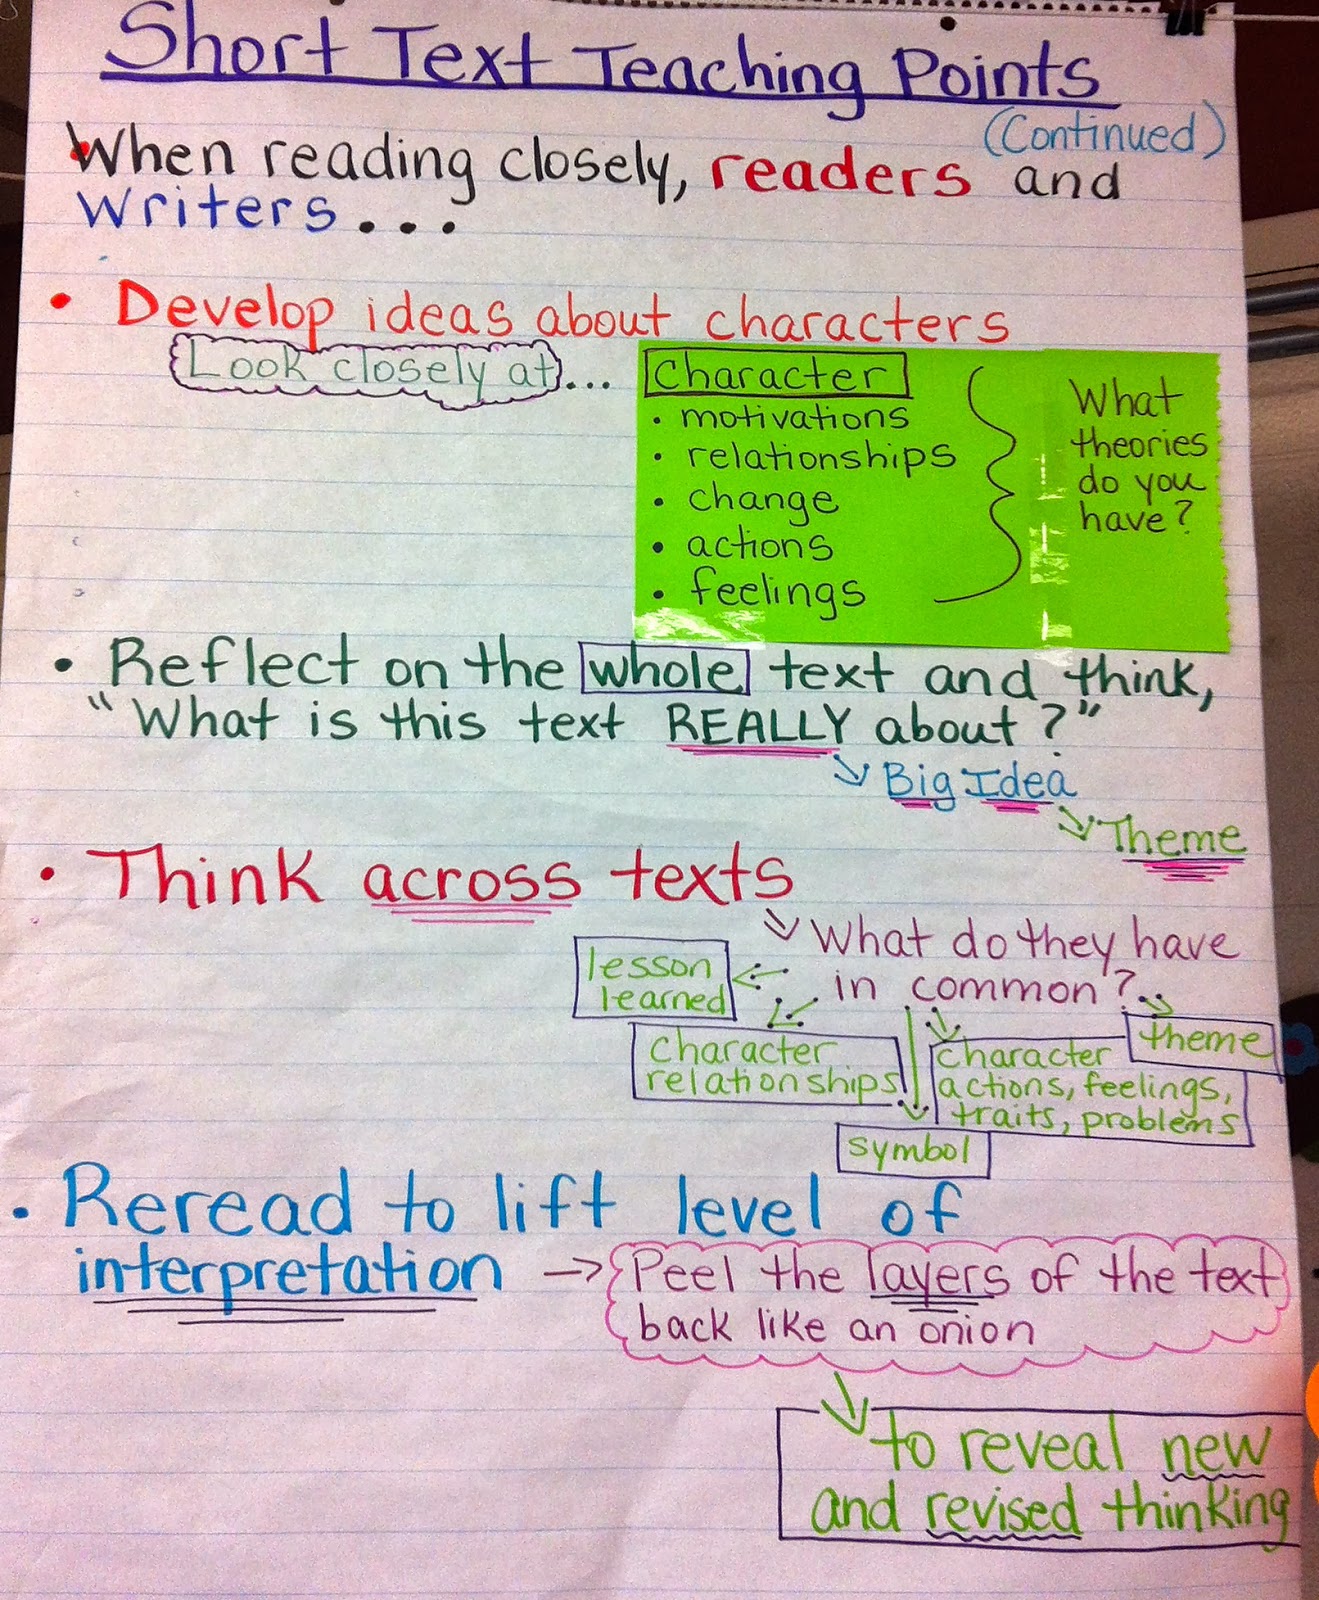 Short Text Teaching Points
(Continued)
When reading closely, readers and
writers...
• Develop ideas about characters
Look closely at...
Character
• motivations
• relationships
• change
• actions
• feelings
What
theories
do you
have?
• Reflect on the whole text and think,
"What is this text REALLY about?"
Big Idea
Theme
• Think across texts
What do they have
in common?..
lesson
learned
Character
relationships
symbol
Character
actions, feelings,
traits, problems
theme
• Reread to lift level of
interpretation → Peel the layers of the text
back like an onion
to reveal new
and revised thinking